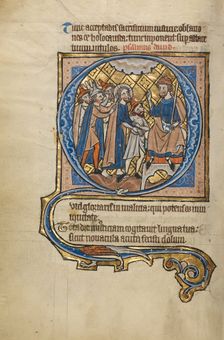 Tunc acceptabis sacrificium iusticie oblatio
nes et holocausta: tunc imponent sup altare
tuum uitulos. psalmus dauid
uid gloriaris in malicia: qui potens es in
iniquitate.
Tota die iniusticiam cogitauit lingua tua:
sicut nouacula acuta fecisti dolum.